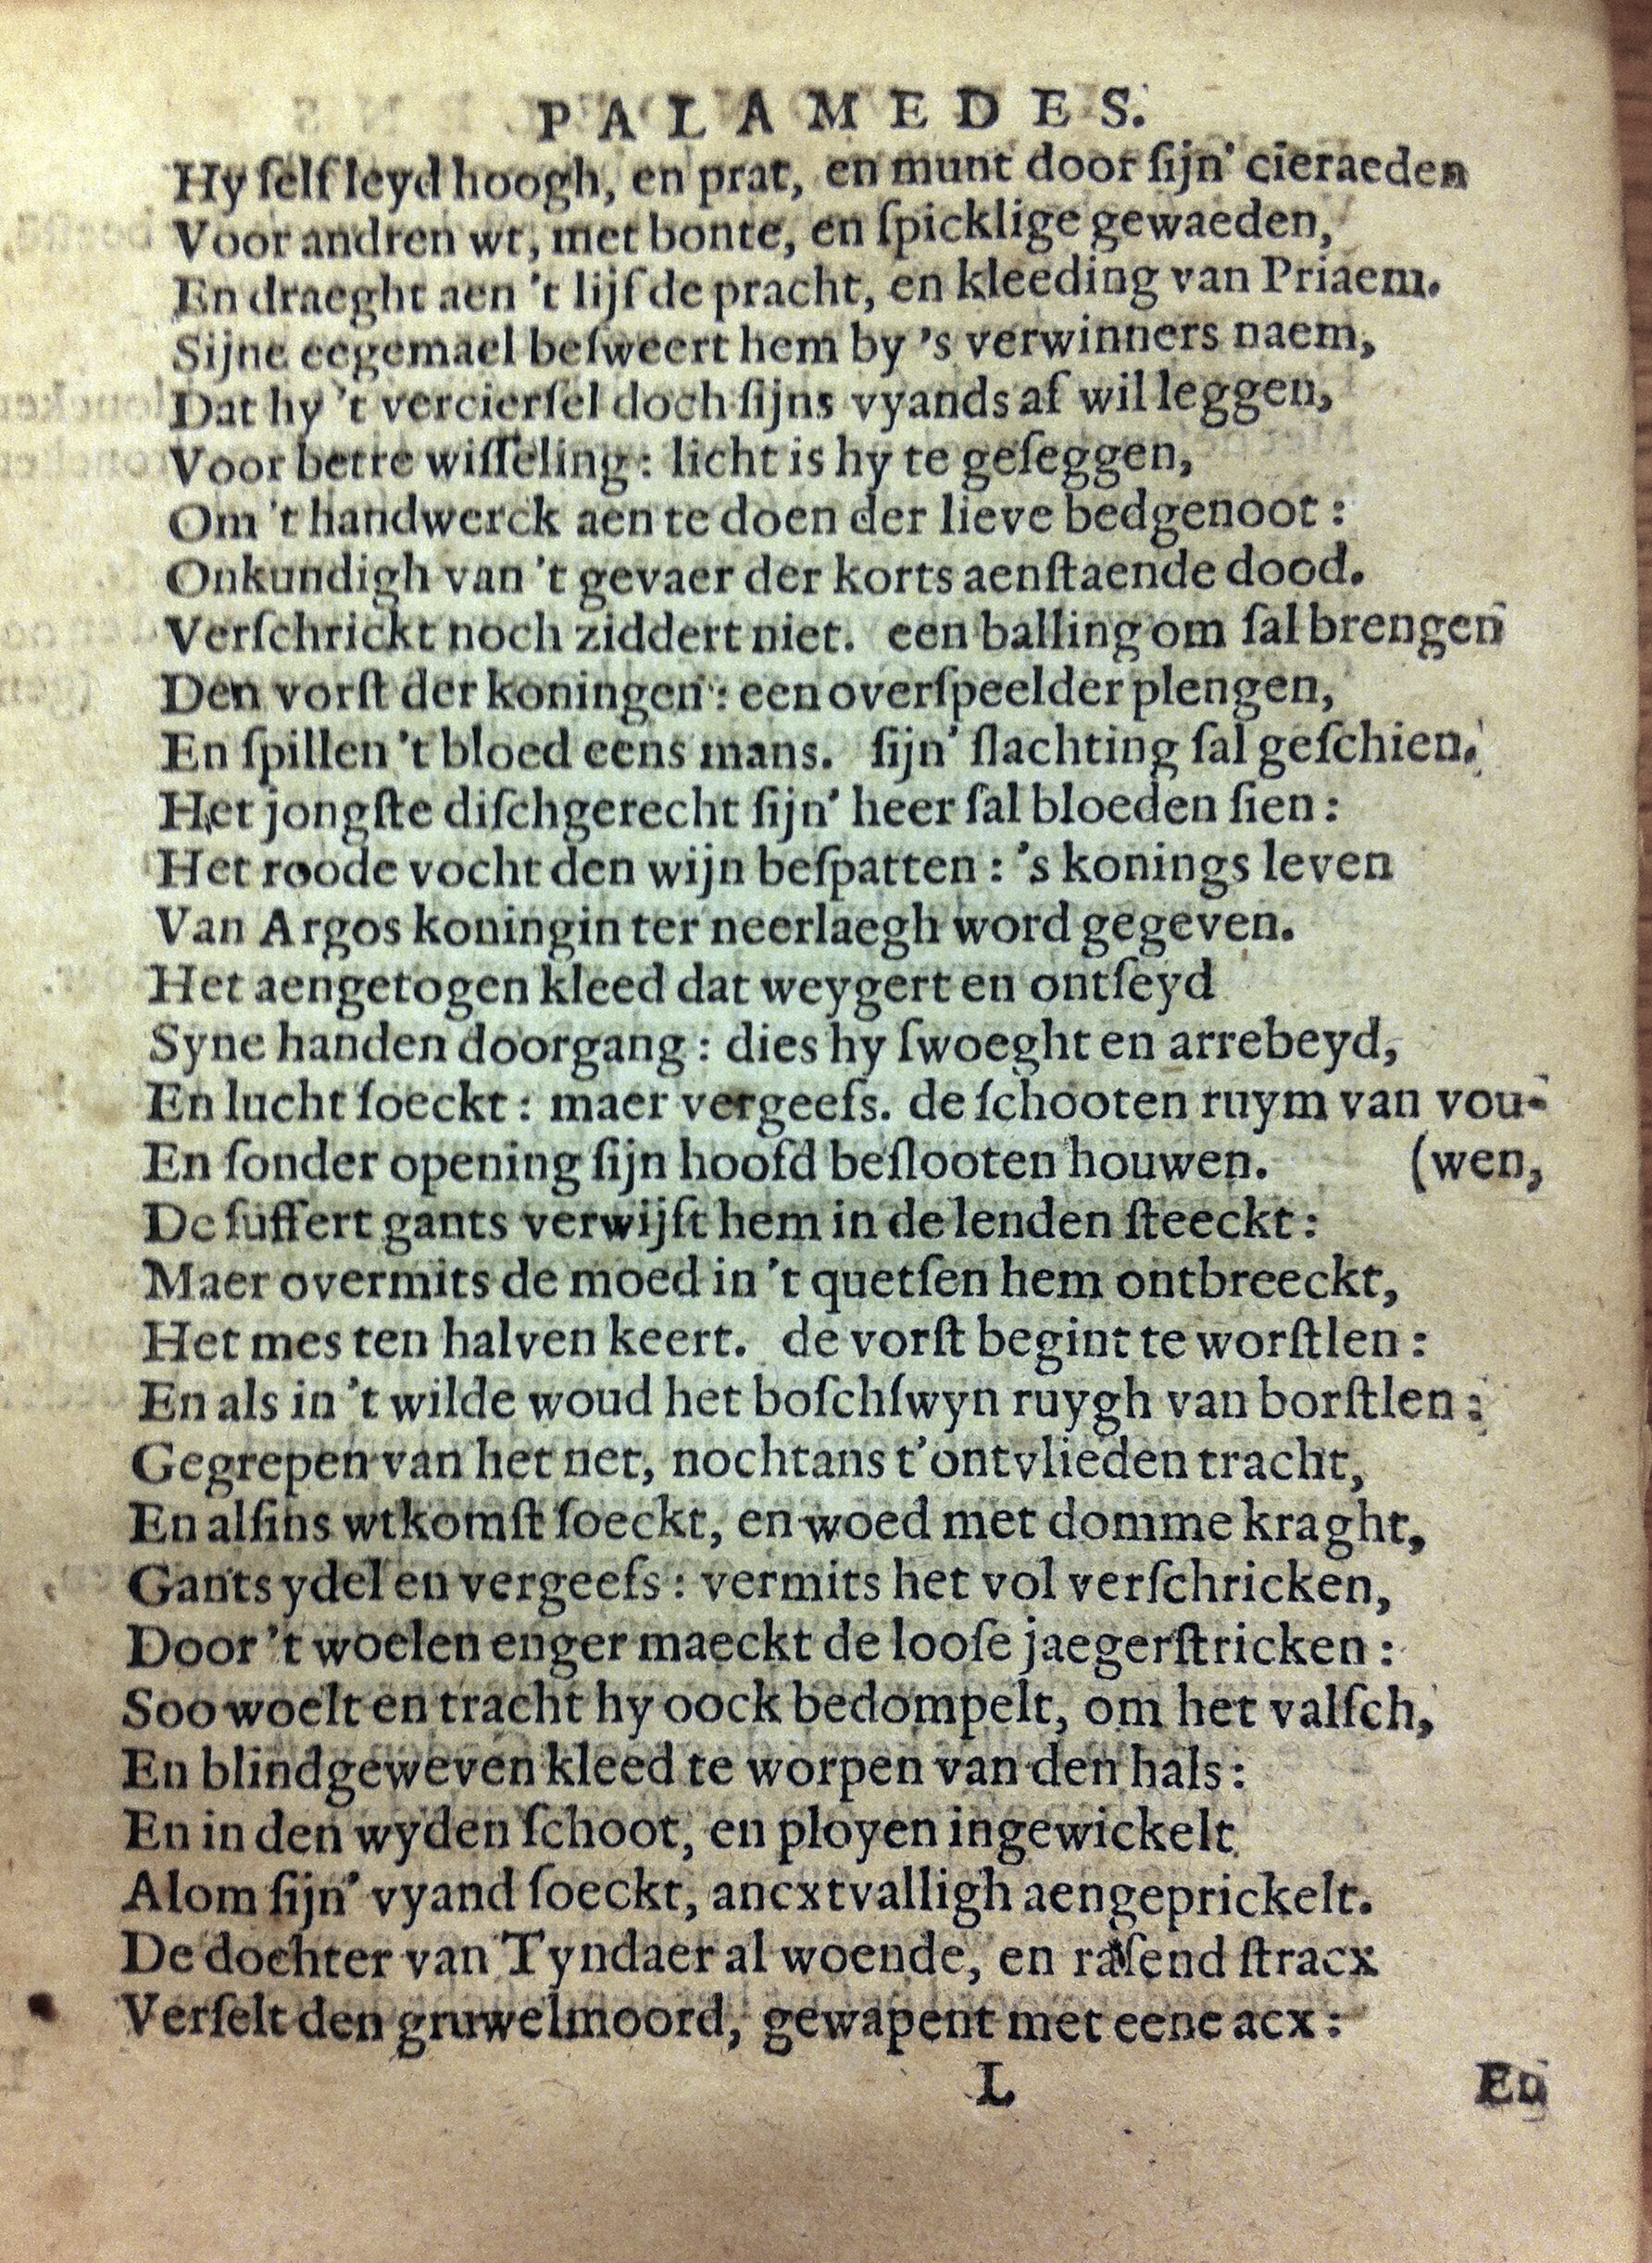 PALAMEDES.
Hy ſelf leyd hoogh, en prat, en munt door ſijn' cieraeden
Voor andren wt, met bonte, en ſpicklige gewaeden,
En draeght aen 't lijf de pracht, en kleeding van Priaem.
Sijne eegemael beſweert hem by 's verwinners naem,
Dat hy 't vercierſel doch ſijns vyands af wil leggen,
Voor betre wiſſeling: licht is hy te geſeggen,
Om 't handwerck aen te doen der lieve bedgenoot:
Onkundigh van 't gevaer der korts aenſtaende dood.
Verſchrickt noch ziddert niet. een balling om ſal brengen
Den vorſt der koningen: een overſpeelder plengen,
En ſpillen 't bloed eens mans. ſijn' ſlachting ſal geſchien.
Het jongſte diſchgerecht ſijn' heer ſal bloeden ſien:
Het roode vocht den wijn beſpatten: 's konings leven
Van Argos koningin ter neerlaegh word gegeven.
Het aengetogen kleed dat weygert en ontſeyd
Syne handen doorgang: dies hy ſwoeght en arrebeyd,
En lucht ſoeckt: maer vergeefs. de ſchooten ruym van vou-
En ſonder opening ſijn hoofd beſlooten houwen. (wen,
De ſuffert gants verwijft hem in de lenden ſteeckt:
Maer overmits de moed in 't quetſen hem ontbreeckt,
Het mes ten halven keert. de vorſt begint te worſtlen:
En als in 't wilde woud het boſchſwyn ruygh van borſtlen:
Gegrepen van het net, nochtans t'ontvlieden tracht,
En alſins wtkomſt ſoeckt, en woed met domme kraght,
Gants ydel en vergeefs: vermits het vol verſchricken,
Door 't woelen enger maeckt de looſe jaegerſtricken:
Soo woelt en tracht hy oock bedompelt, om het valſch,
En blindgeweven kleed te worpen van den hals:
En in den wyden ſchoot, en ployen ingewickelt
Alom ſijn' vyand ſoeckt, ancxtvalligh aengeprickelt.
De dochter van Tyndaer al woende, en raſend ſtracx
Verſelt den gruwelmoord, gewapent met eene acx:
L En